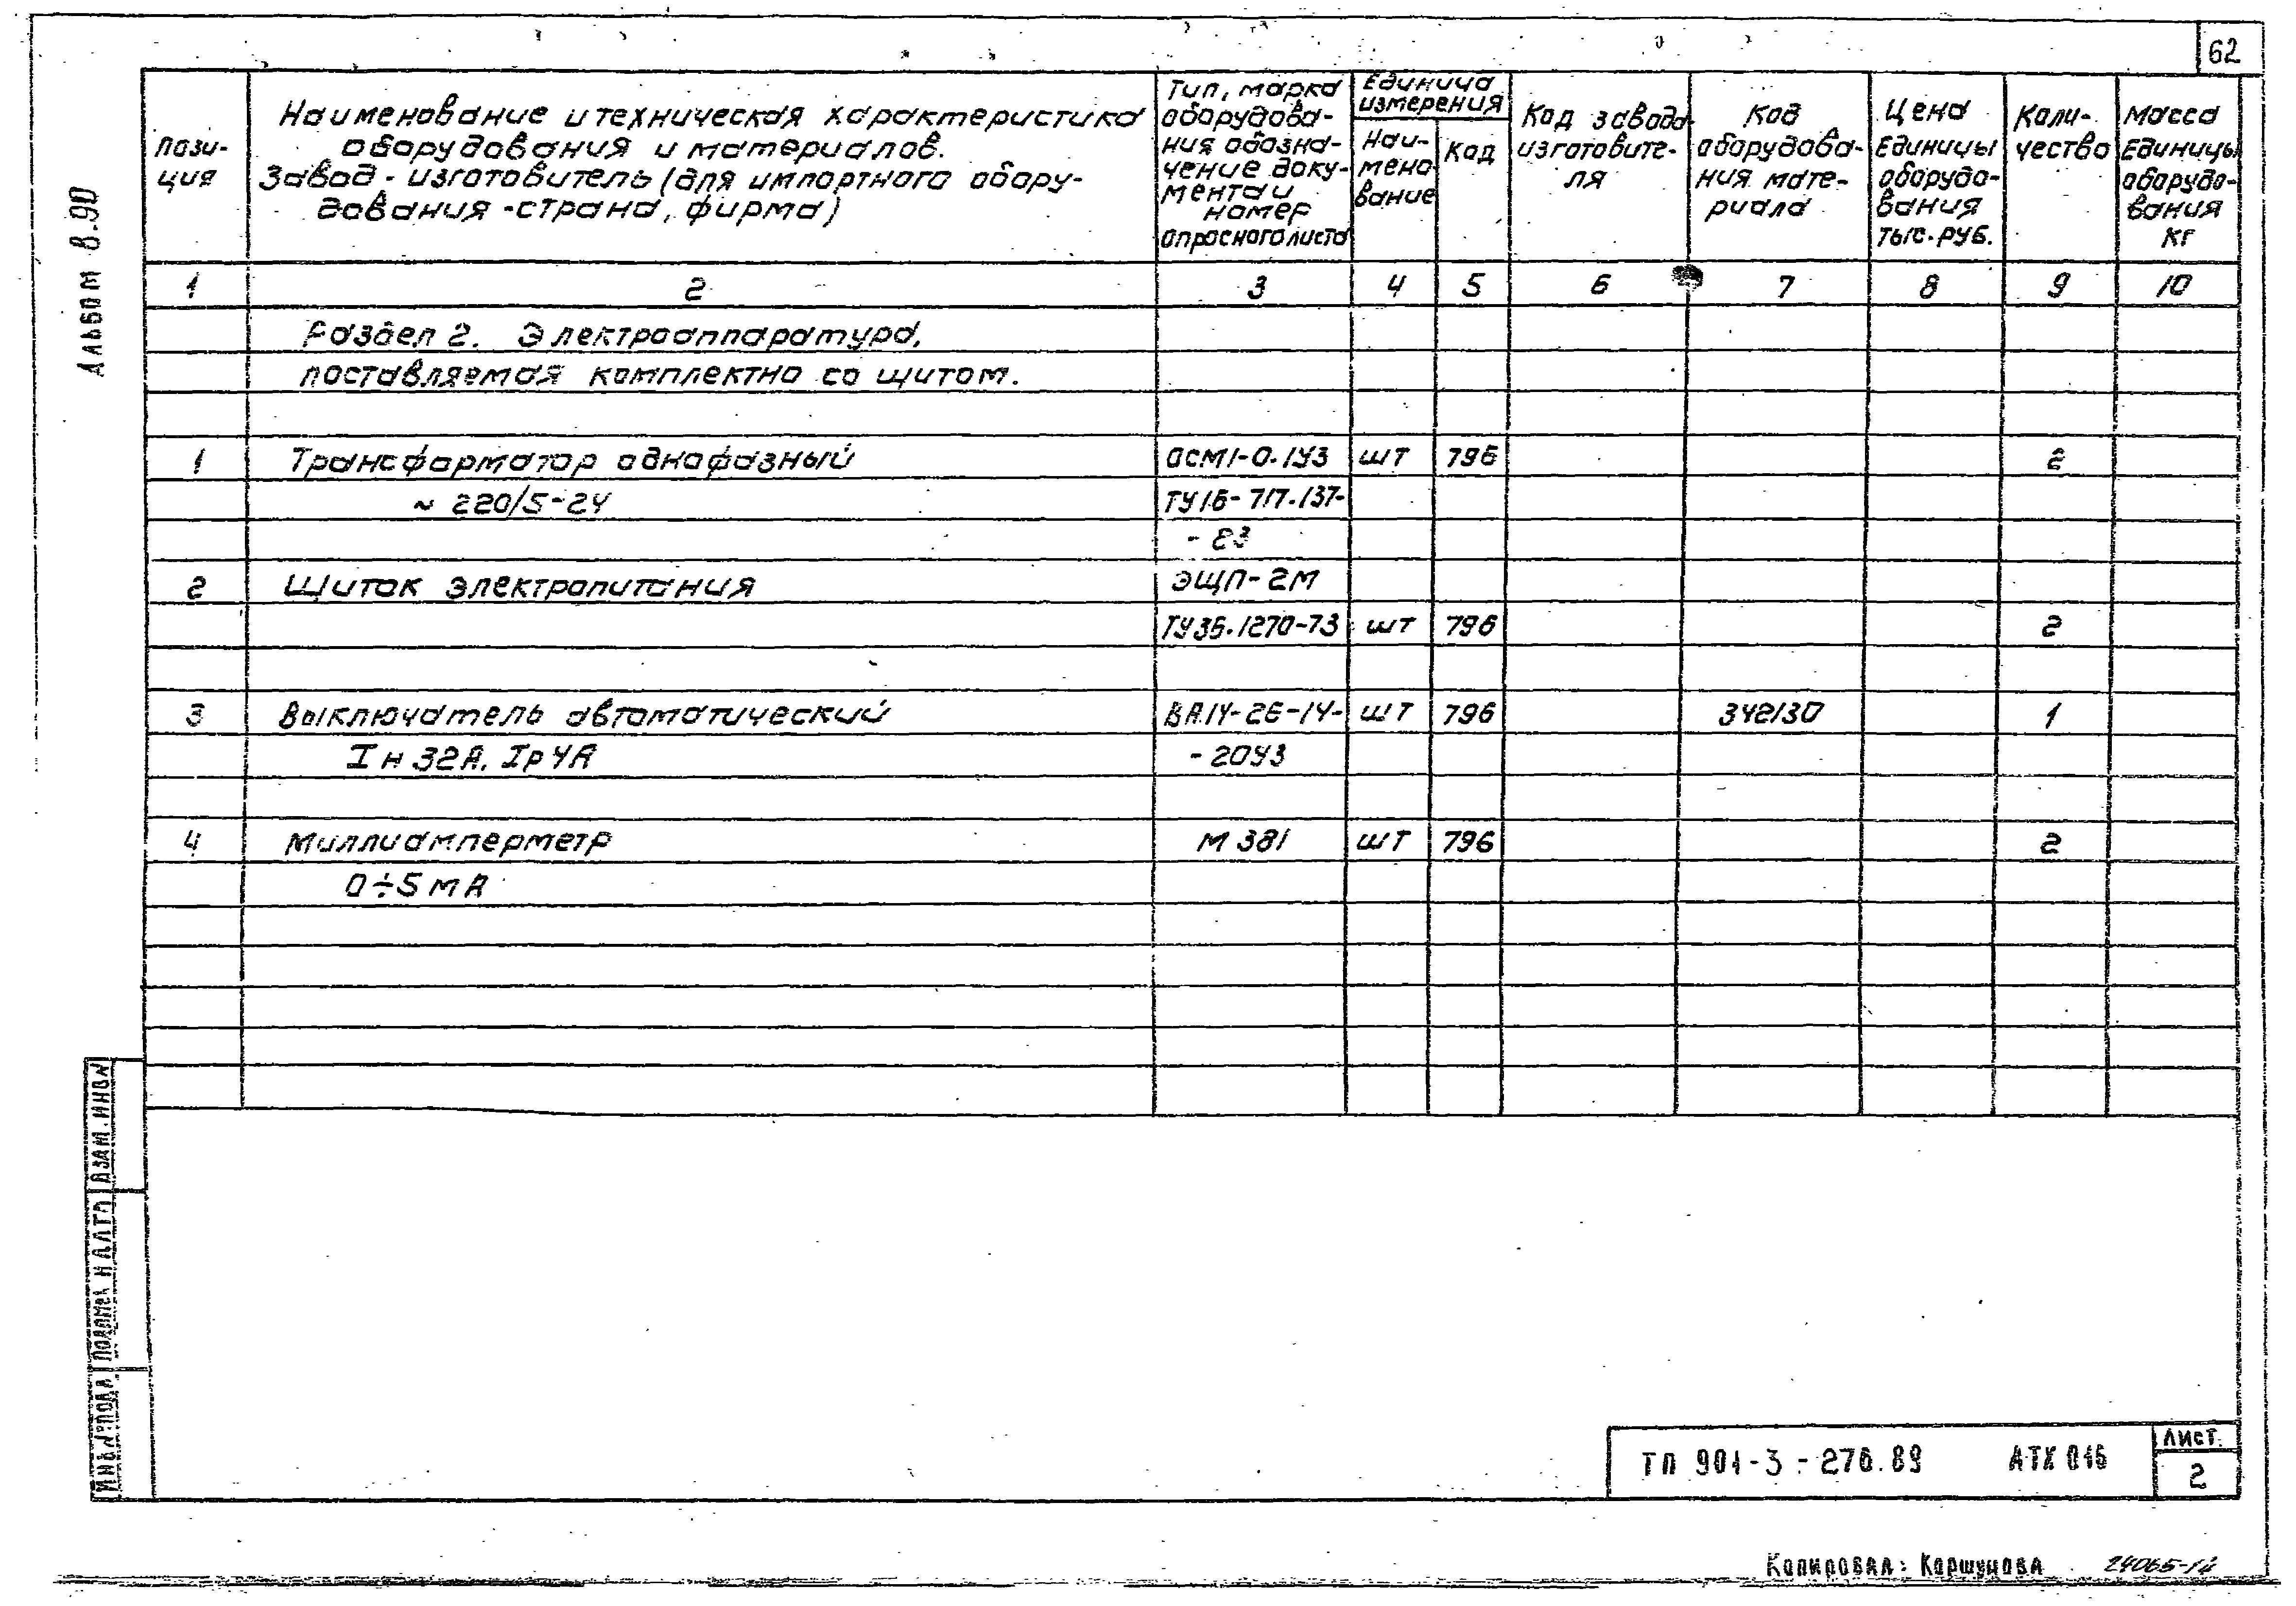 62
Альбом 8.90
Пози-
ция
Наименование и техническая характеристика
оборудования и материалов.
Завод-изготовитель (для импортного обору-
дования -страна, фирма)
Тип, марка
оборудова-
ния обозна-
чение доку-
мента и
номер
опросного листа
Единица
измерения
Наи-
мено-
вание
Код
Код завода
изготовите-
ля
Код
оборудова-
ния мате-
риала
Цена
Единицы
оборудо-
вания
тыс. руб.
Коли-
чество
Масса
Единицы
оборудо-
вания
кг
1 2 3 4 5 6 7 8 9 10
Раздел 2. Электроаппаратура,
поставляемая комплектно со щитом.
1 Трансформатор однофазный ОСМ1-0.1У3 шт 796 2
~ 220/5-24 ТУ16-717.137-
- 83
2 Щиток электропитания ЭЩП-2М
ТУ36.1270-73 шт 796 2
3 Выключатель автоматический ВА14-26-14- шт 796 342130 1
Iн 32А. Iр 4А - 20У3
4 Миллиамперметр М 381 шт 796 2
0÷5 мА
Взам. инв N
Инв № подл
ТП 901-3-276.89 АТХ 016
Лист
2
Копировал: Коршунова 24065-14